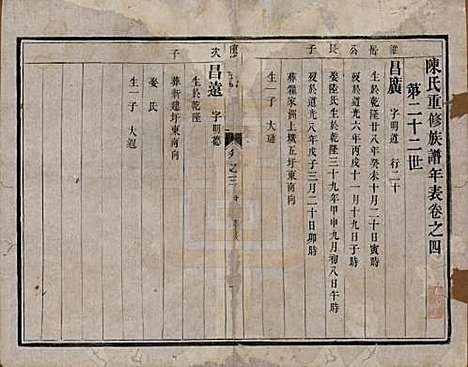 陳氏重修族譜年表卷之四
第二十二世
昌廣 字明道 行二十
生於乾隆廿八年癸未十月二十日子時
歿於道光六年丙戌十一月十七日子時
娶陸氏生於乾隆三十九年甲申九月初八日午時
歿於道光八年戊子三月二十日卯時
葬翟家洲上壩五圩東南向
生一子 大通
公長子
次子
昌遠 字明德
生於乾隆
葬新建圩東南向
娶氏
生一子 大